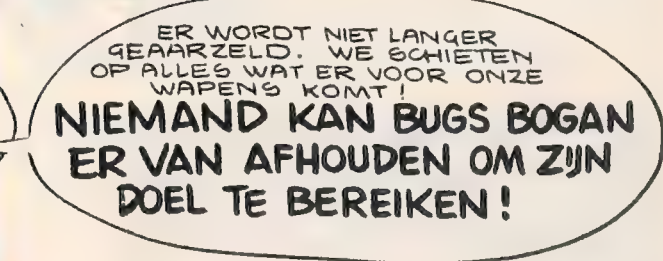 ER WORDT NIET LANGER
GEAARZELD. WE SCHIETEN
OP ALLES WAT ER VOOR ONZE
WAPENS KOMT!
NIEMAND KAN BUGS BOGAN
ER VAN AFHOUDEN OM ZIJN
DOEL TE BEREIKEN!